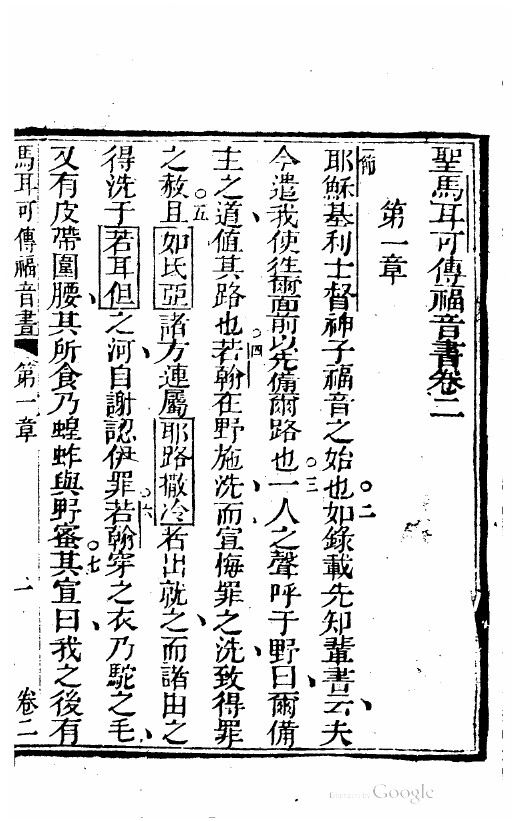 聖馬耳可傳福音書卷二
第一章
一節
耶穌基利士督神子福音之始也二如錄載先知輩書云夫
今遣我使徃爾面前以先備爾路也三一人之聲呼于野曰爾備
主之道值其路也四若翰在野施洗而宣悔罪之洗致得罪
之赦五且如氏亞諸方連屬耶路撒冷者出就之而諸由之
得洗于若耳但之河自謝認伊罪六若翰穿之衣乃駝之毛
又有皮帶圍腰其所食乃蝗蚱與野蜜七其宣曰我之後有
馬耳可傳福音書 第一章 一 卷二
Digitized by Google